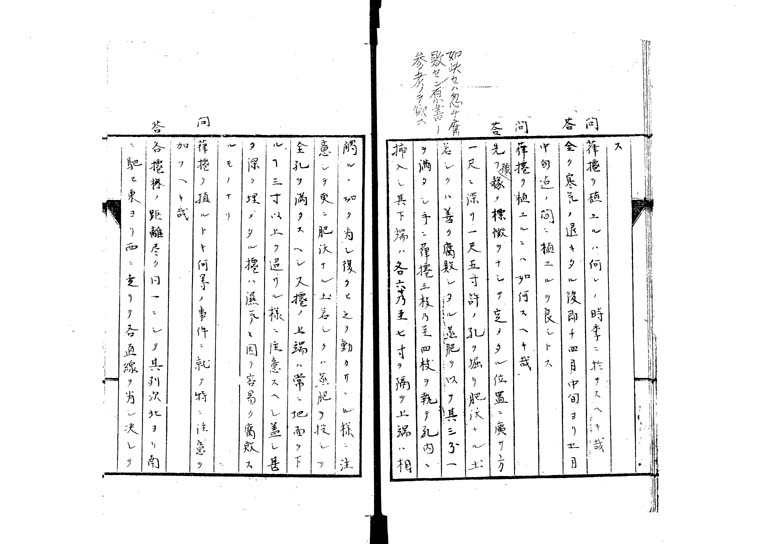 ス
問 葎捲ヲ植エルハ何レノ時季ニ於テスヘキ哉
答 全ク寒気ノ退キタル後即チ四月中旬ヨリ五月
中旬迄ノ間ニ植エルヲ良シトス
問 葎捲ヲ植エルニハ如何スヘキ哉
答 先ツ予メ標檄ヲナシテ定メタル位置ニ広サ方
一尺ニ深サ一尺五寸許ノ孔ヲ掘リ肥沃ナル土
若シクハ善ク腐敗シタル厩肥ヲ以テ其三分ノ一
ヲ満タシ手ニ葎捲三枚乃至四枚ヲ執テ孔内ニ
挿入シ其下端ハ各六乃至七寸ヲ隔テ上端ハ相
如此セハ忽チ腐
敗セン原書ノ
参考ヲ
觸ルヽ如ク為シ復タヒ之ヲ動カサヽル様ニ注
意シテ更ニ肥沃ナル土若シクハ厩肥ヲ投シテ
全孔ヲ満タスヘシ又捲ノ上端ハ常ニ地面ヲ下
ルコト三寸以上ヲ過サル様ニ注意スヘシ蓋シ甚
タ深ク埋メタル捲ハ湿気ニ因テ容易ク腐敗ス
ルモノナリ
問 葎捲ヲ植ルトキ何等ノ事件ニ就テ特ニ注意ヲ
加フヘキ哉
答 各捲椽ノ距離尽ク同一ニシテ其列次北ヨリ南
ニ馳セ東ヨリ西ニ走リテ各直線ヲ為シ決シテ